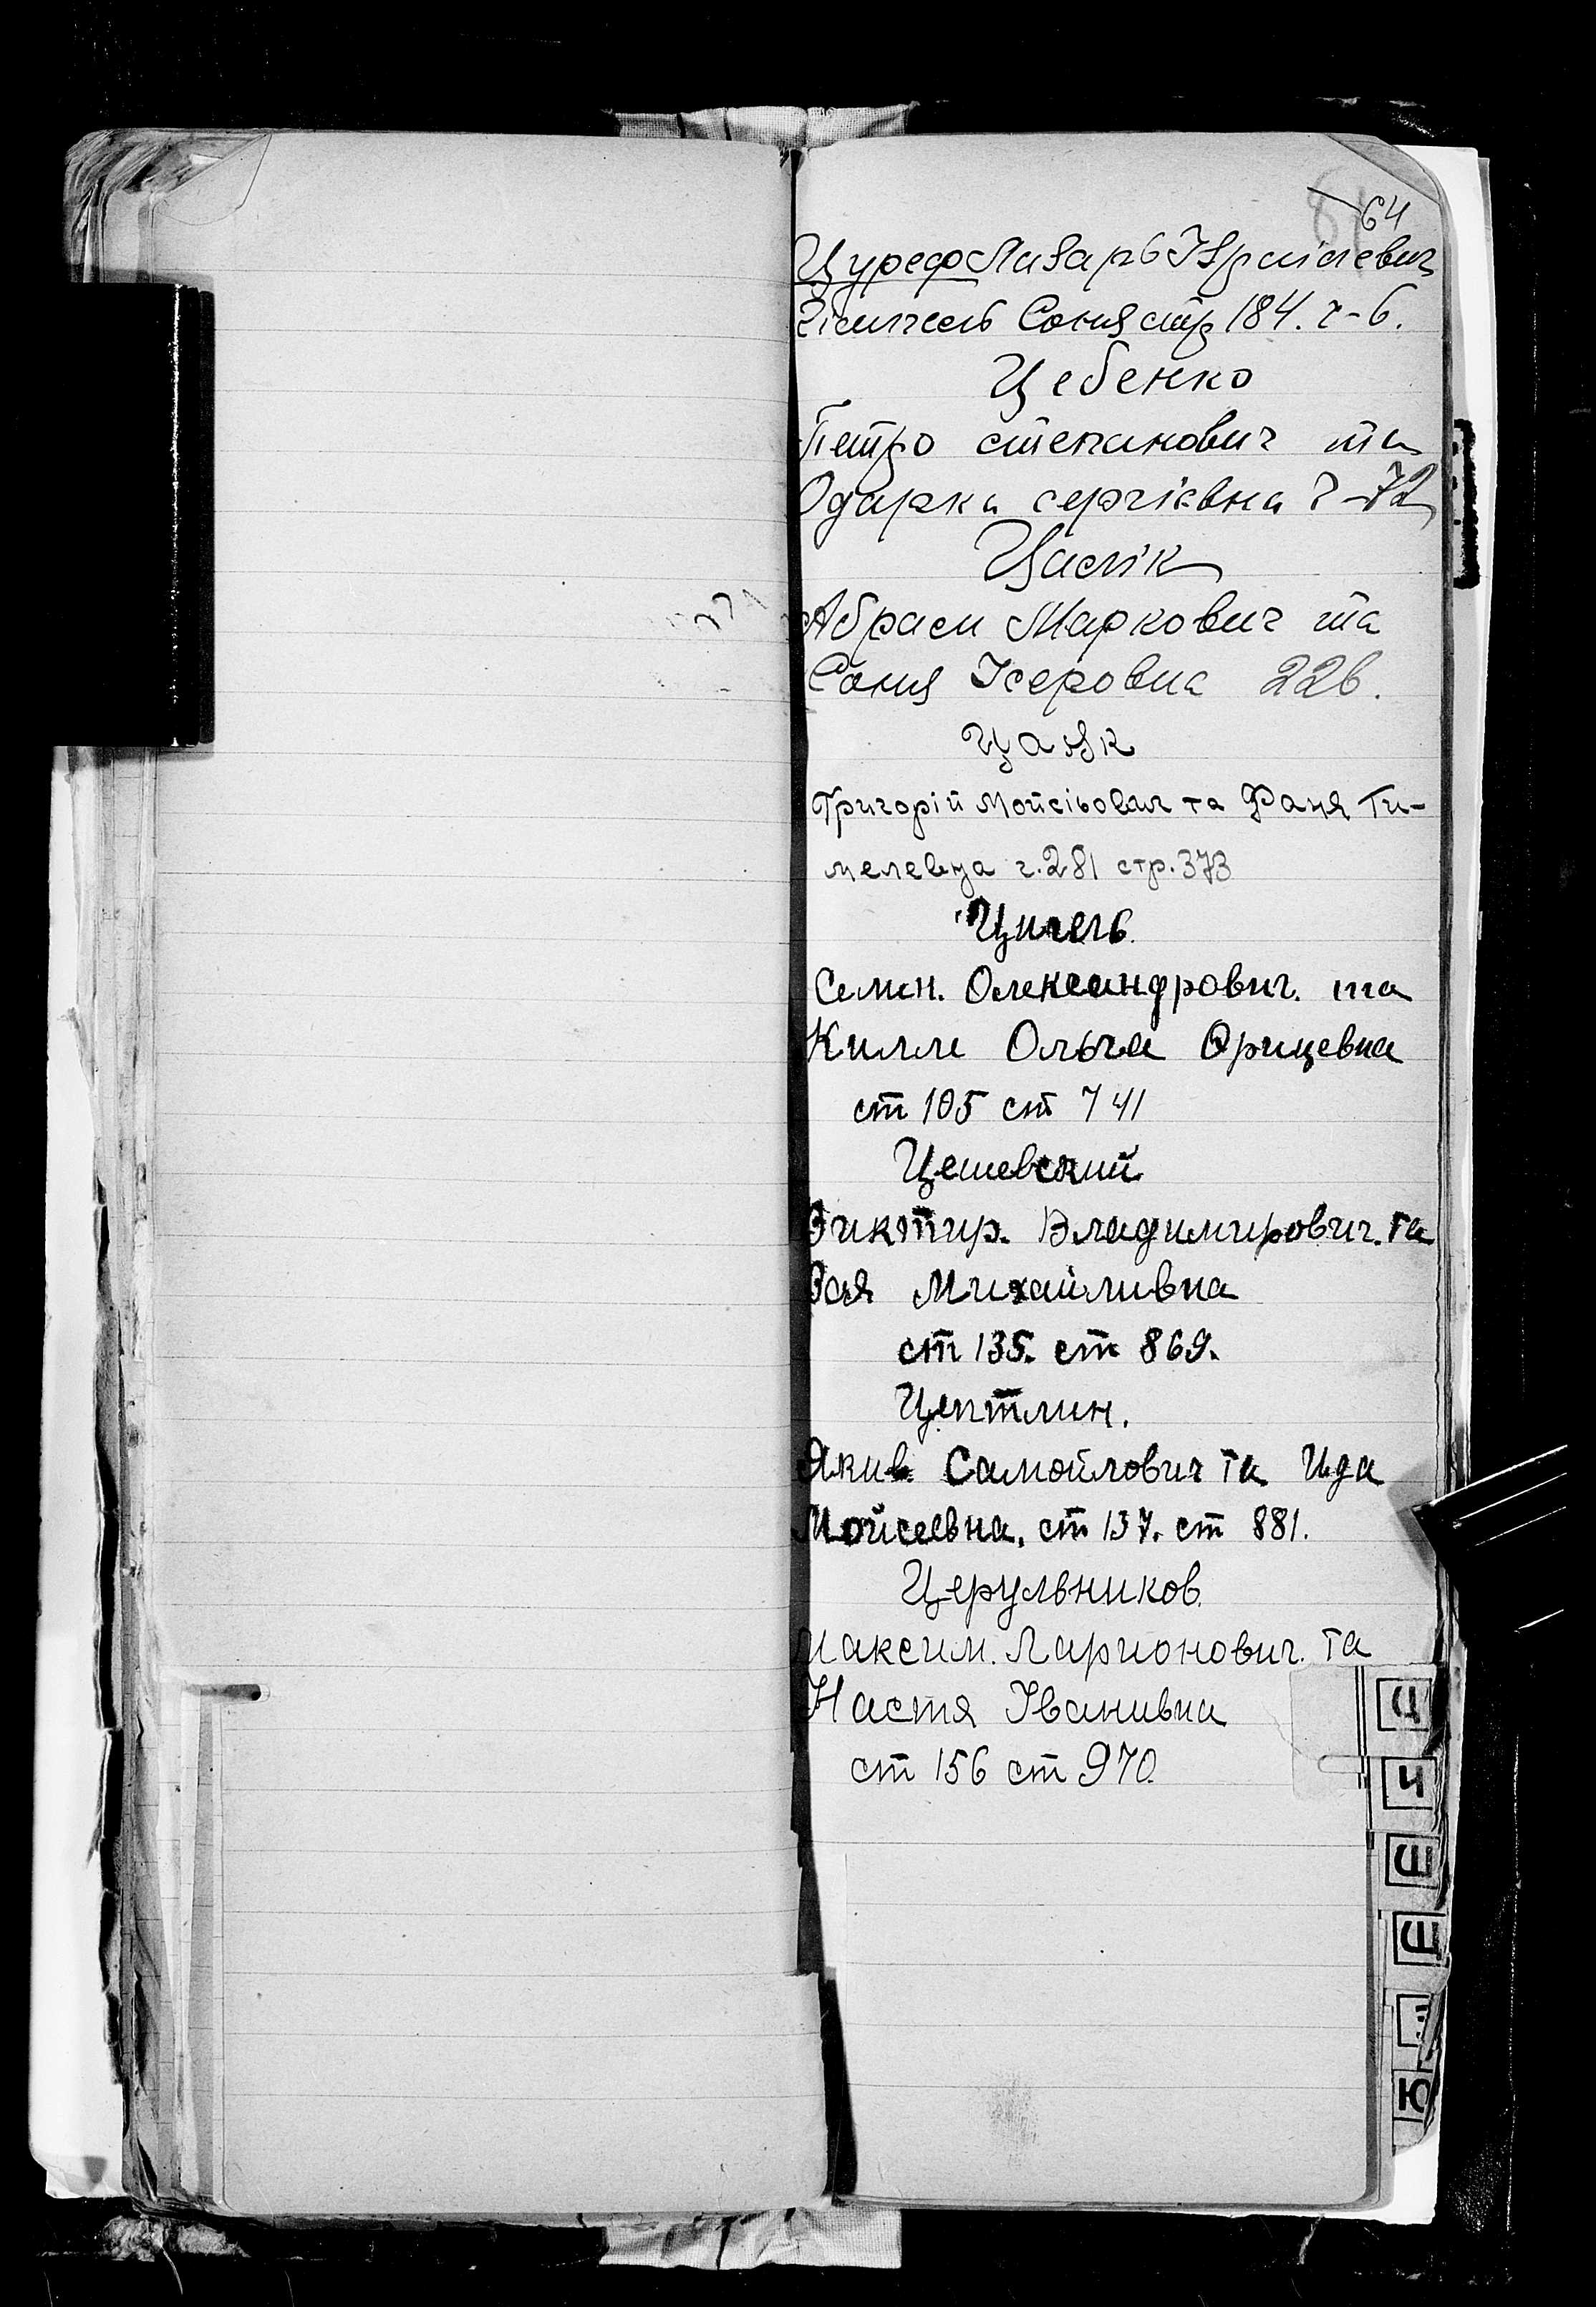 64
Цуреф Лазарь Ізраілевич
Соня стр 184. ч-6.
Цебенко
Петро степанович та
Одарка сергієвна ч-72
Цалік
Абрам Маркович та
Соня Ісеровна 226.
Григорій Мойсійович та Фаня Ги-
мелевна ч.281 стр.373
Семен. Олександрович. та
Килли Ольга Фрицевна
ст 105 ст 741
Цешевский
Виктир. Владимирович. та
Рая Михайливна
ст 135. ст 869.
Цептлин.
Якив Самойлович та Ида
Мойсеевна. ст 137. ст 881.
Церульников.
Максим. Ларионович. та
Настя Іванивна
ст 156 ст 970.
Ц
Ч
Ш
Щ
Ю